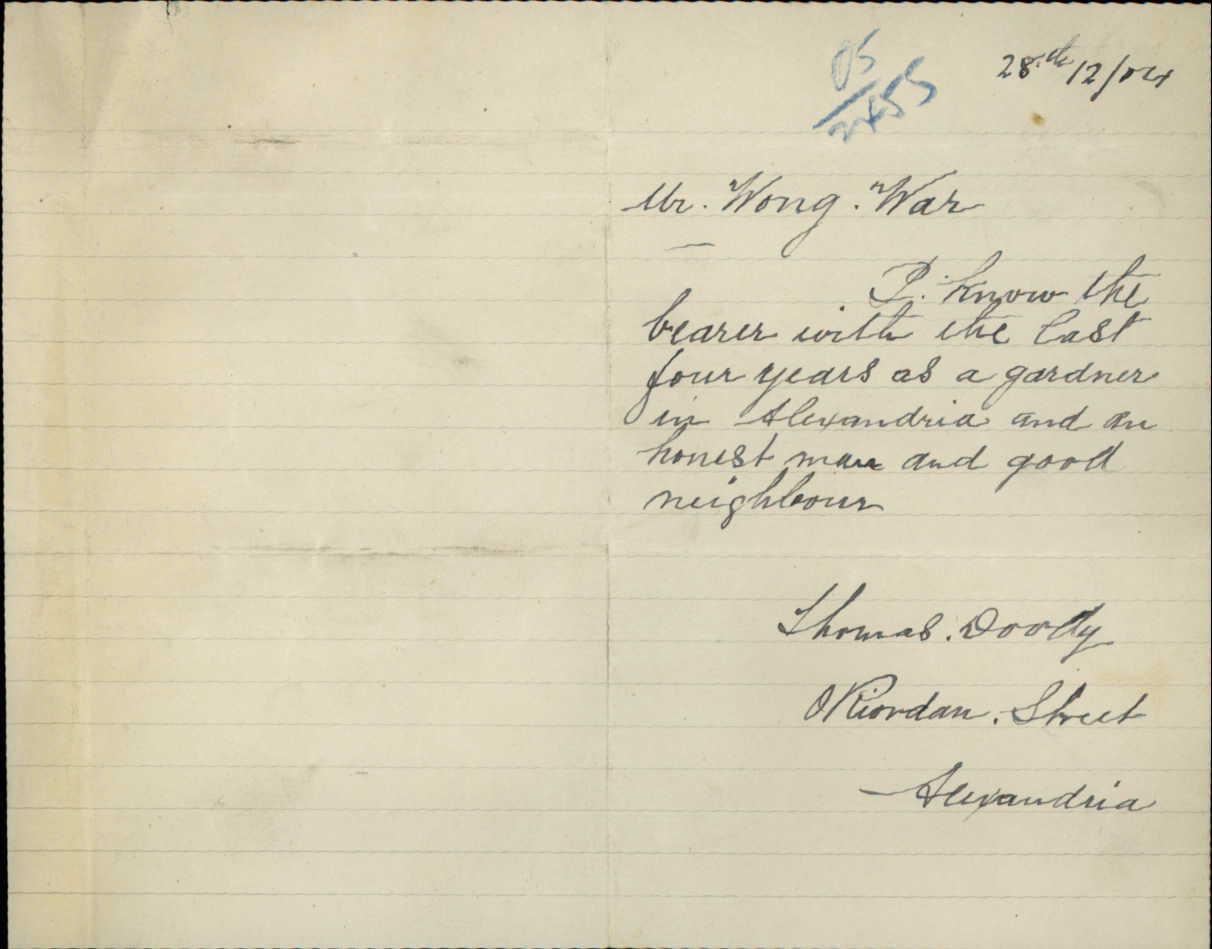 05
2455
28th 12/04
Mr. Wong. War
I. know the
bearer with the last
four years as a gardner
in Alexandria and an
honest man and good
neighbour
Thomas. Doody
ORiordan. Street
Alexandria